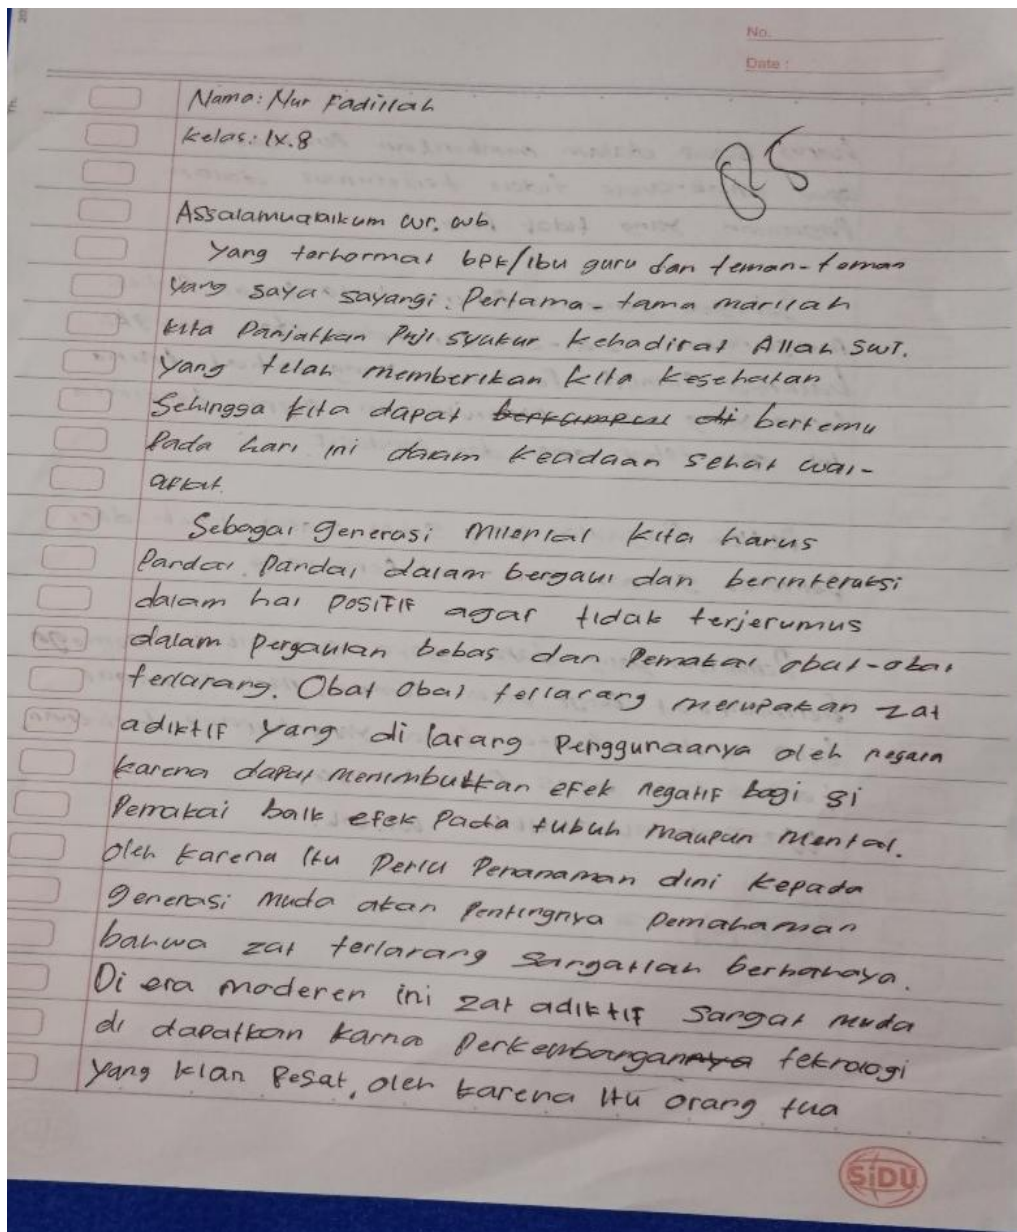 No.
Date :
Nama: Nur Fadillah
Kelas: IX.8
85
Assalamualaikum wr. wb.
Yang terhormat bpk/ibu guru dan teman-teman
yang saya sayangi. Pertama-tama marilah
kita Panjatkan Puji syukur kehadirat Allah SWT.
Yang telah memberikan kita kesehatan
Sehingga kita dapat berkumpul di bertemu
Pada hari ini dalam keadaan sehat wal-
afiat.
Sebagai generasi milenial kita harus
Pandai Pandai dalam bergaul dan berinteraksi
dalam hal POSITIF agar tidak terjerumus
dalam Pergaulan bebas dan Pemakai obat-obat
terlarang. Obat obat terlarang merupakan zat
adiktif yang di larang Penggunaanya oleh negara
karena dapat menimbulkan efek negatif bagi si
Pemakai baik efek Pada tubuh maupun mental.
Oleh karena itu Perlu Penanaman dini kepada
generasi muda akan Pentingnya Pemahaman
bahwa zat terlarang sangatlah berbahaya.
Di era moderen ini zat adiktif sangat muda
di dapatkan karna Perkembangannya teknologi
yang kian Pesat, oleh karena itu orang tua
SiDU